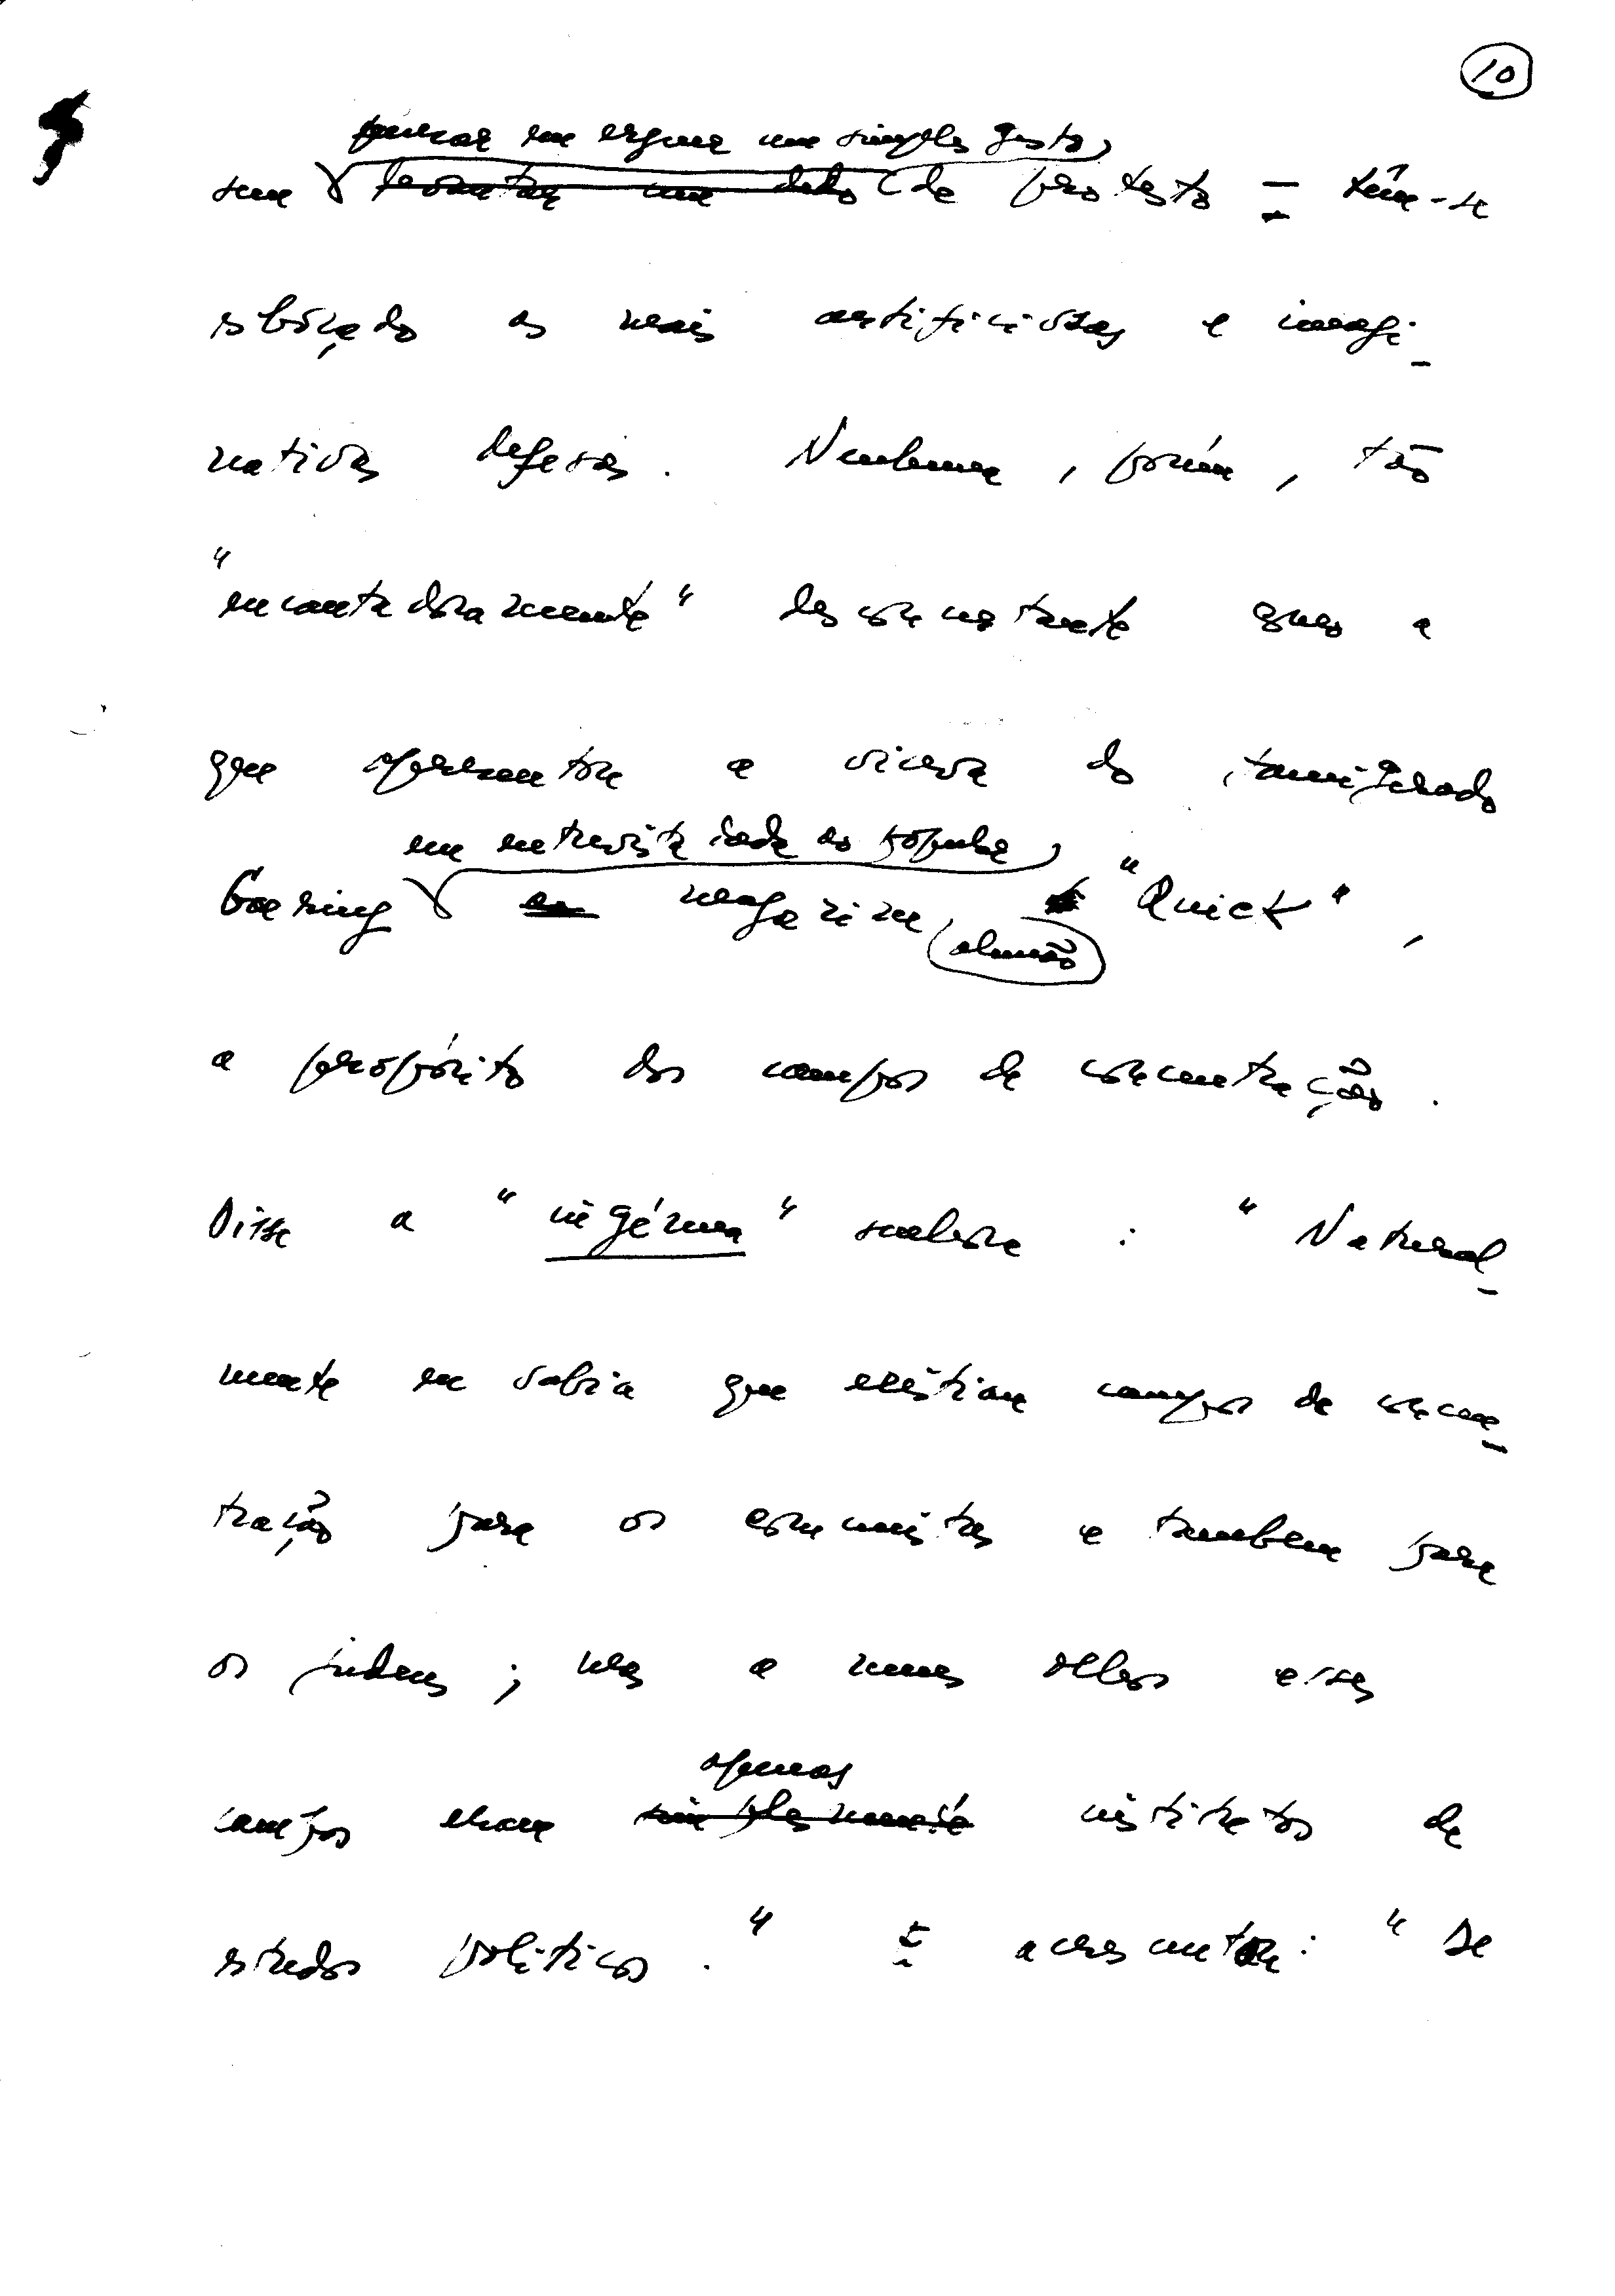 10
pensar em erguer um simples gesto
sem levantar um dedo de protesto — têm-se
esboçado as mais artificiosas e imagi-
nativas defesas. Nenhuma, porém, tão
"encantadoramente" desconcertante quão a
que apresentou a viúva do famigerado
em entrevista dada ao popular
Goering magazine "Quick",
alemão
a propósito dos campos de concentração.
Disse a "ingénua" senhora: "Natural-
mente eu sabia que existiam campos de concen-
tração para os comunistas e tambem para
os judeus; mas a meus olhos esses
apenas
campos eram simplesmente institutos de
estudos politicos." E acrescentou: "Se